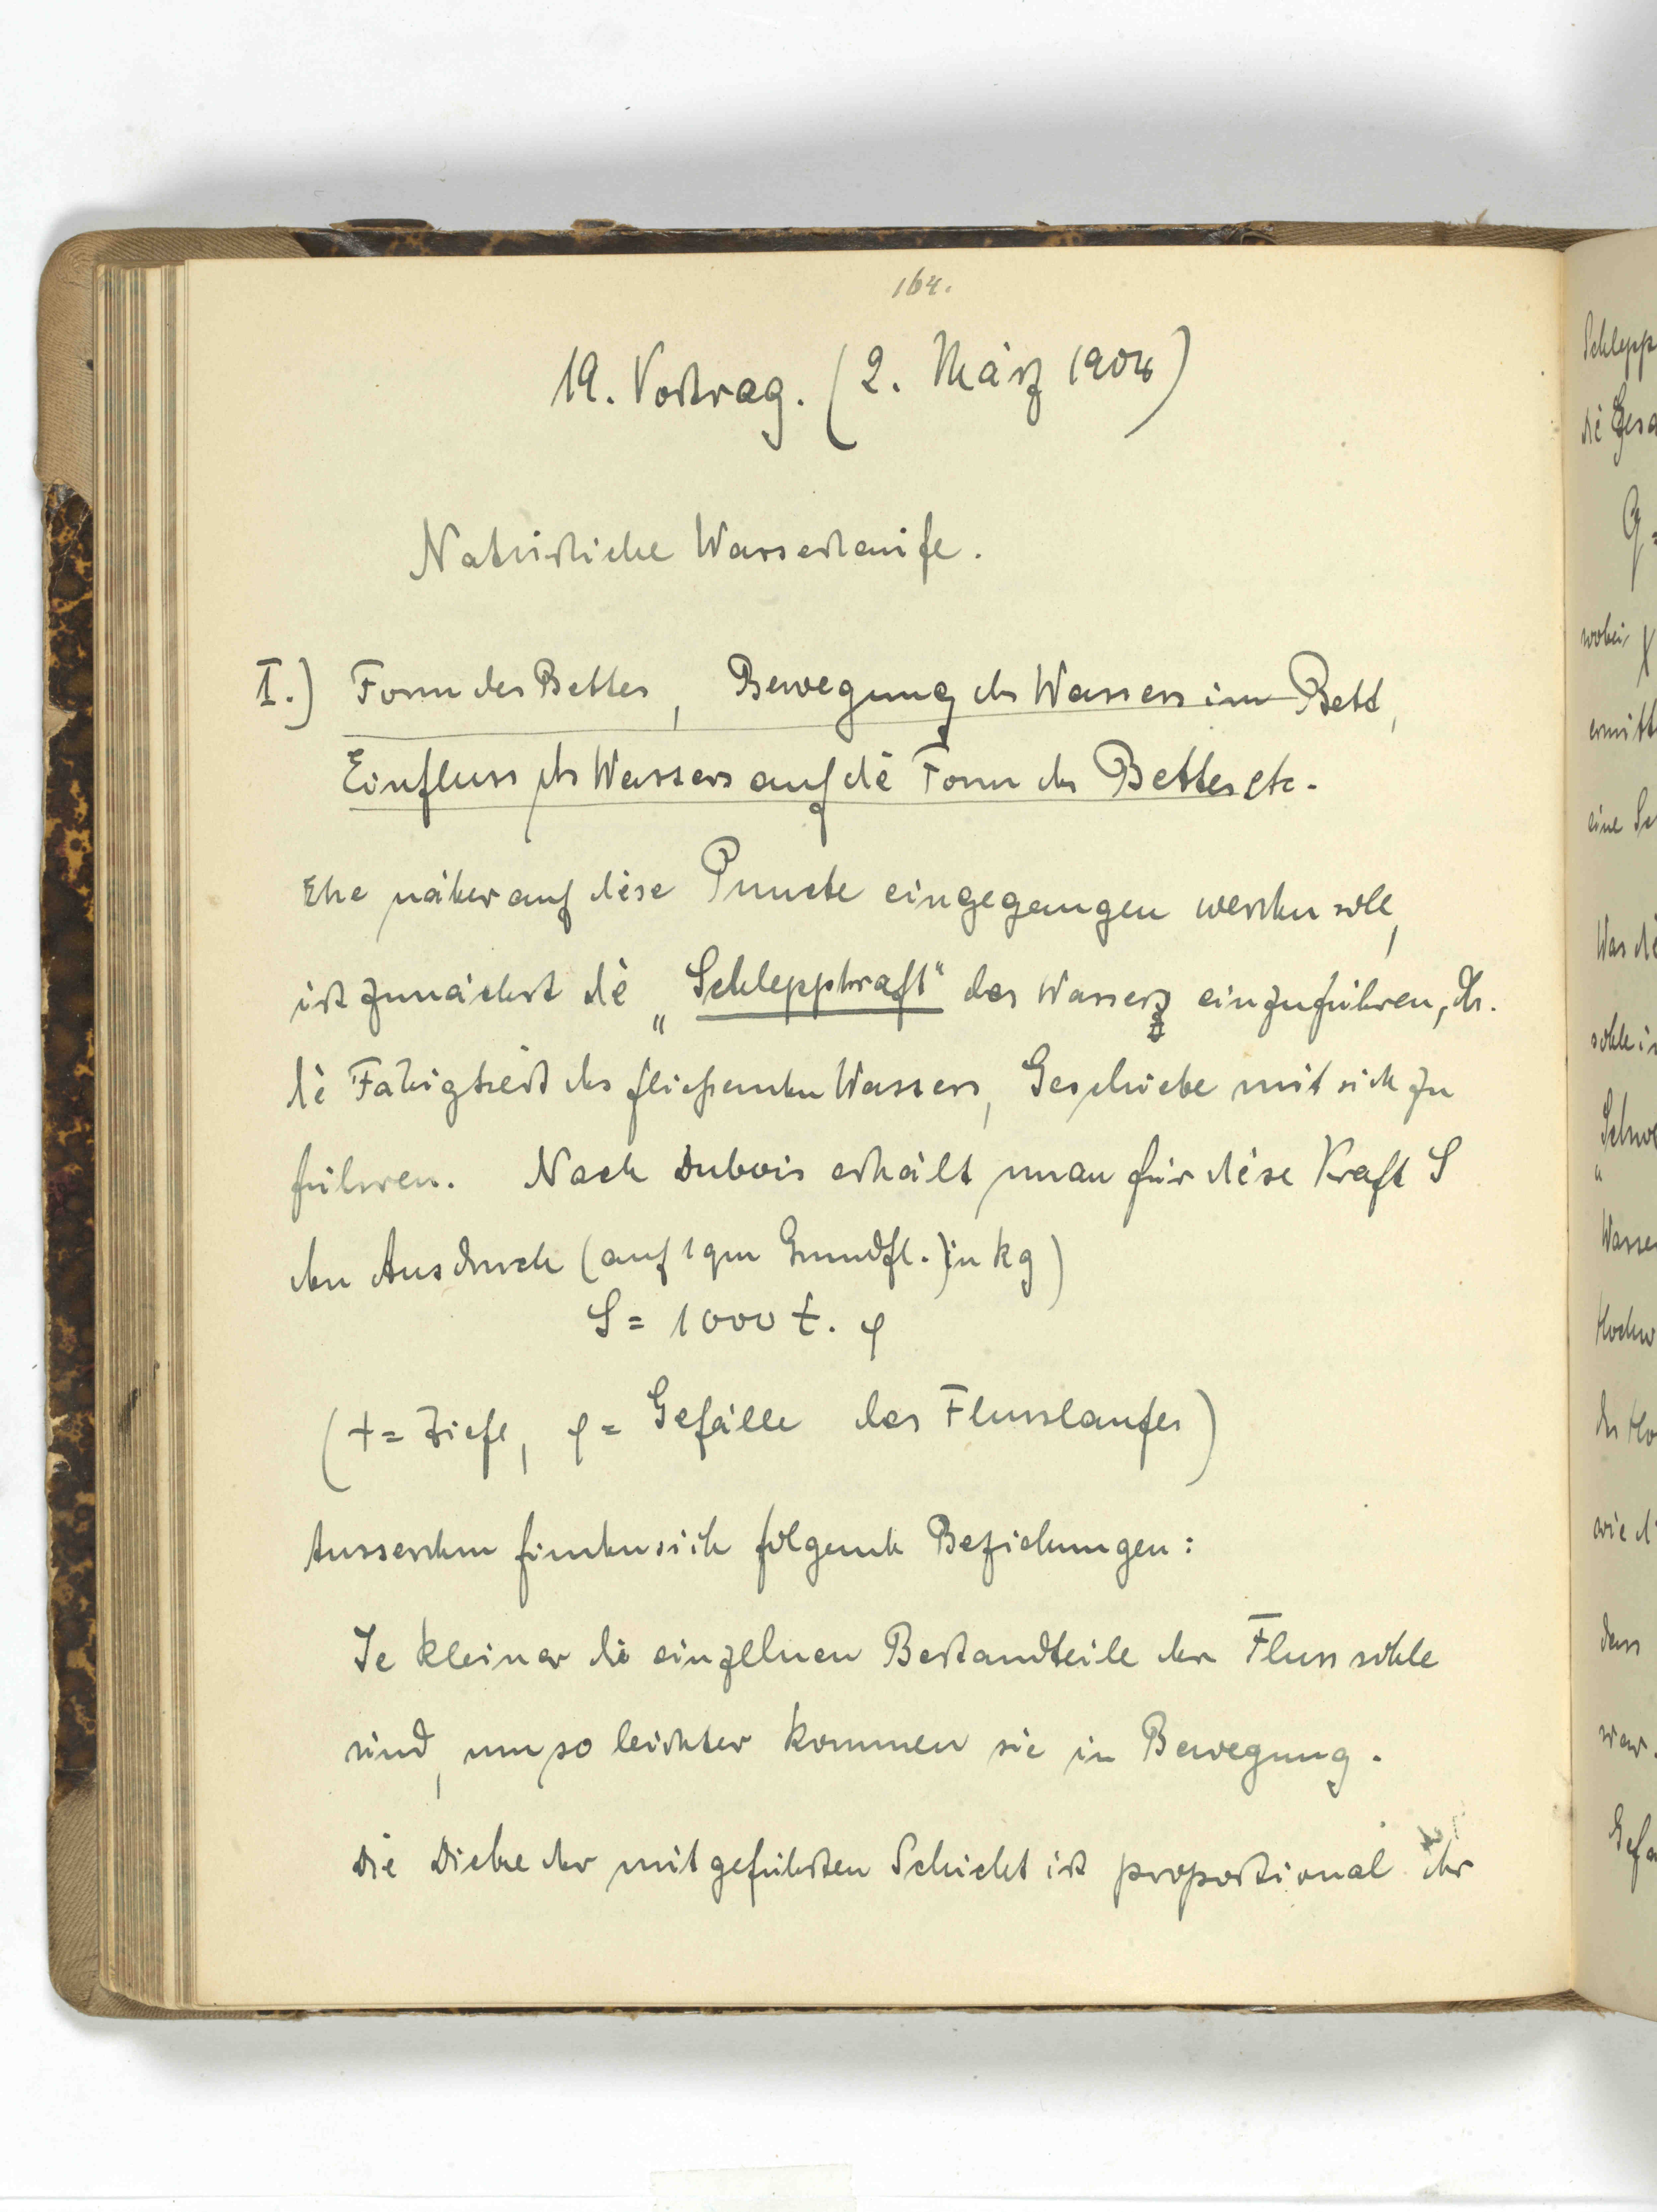 164.
19. Vortrag. (2. März 1904)
Natürliche Wasserläufe.
I.) Form des Bettes, Bewegung des Wassers im Bett,
Einfluss des Wassers auf die Form des Bettes etc.
Ehe näher auf diese Puncte eingegangen werden soll,
ist zunächst die „Schleppkraft“ des Wassers einzuführen, dh.
die Fähigkeit des fließenden Wassers, Geschiebe mit sich zu
führen. Nach Dubois erhält man für diese Kraft S
den Ausdruck (auf 1 qm Grundfl.) in kg)
S = 1000 t. φ
(t = Tiefe, φ = Gefälle des Flusslaufes)
Ausserdem finden sich folgende Beziehungen:
Je kleiner die einzelnen Bestandteile der Flusssohle
sind, um so leichter kommen sie in Bewegung.
Die Dicke der mitgeführten Schicht ist proportional der
Schlepp
die Gesa
Q =
wobei χ
ermitt
eine Sc
Was die
sohle is
„Schwe
Wasse
Hochw
des Ho
wie di
dass
war.
Gefä